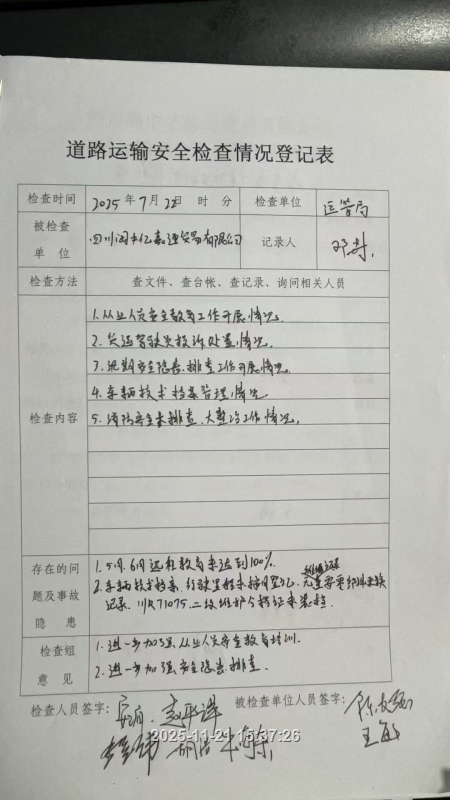 道路运输安全检查情况登记表
检查时间 2025年7月22日 时 分 检查单位 运管局
被检查单位 四川阆中亿嘉运贸易有限公司 记录人 邓
检查方法 查文件、查台帐、查记录、询问相关人员
检查内容
1.从业人员安全教育工作开展情况.
2.客运驾驶员投诉处置情况.
3.近期安全隐患排查工作开展情况.
4.车辆技术档案管理情况.
5.消防安全大排查、大整治工作情况.
存在的问题及事故隐患
1.5月、6月远程教育未达到100%.
2.车辆技术档案、行驶里程未按月登记、无重要零部件更换
记录、川R71075二级维护合格证未装档.
检查组意见
1.进一步加强从业人员安全教育培训.
2.进一步加强安全隐患排查.
检查人员签字： 被检查单位人员签字：
2025-11-21 15:37:26